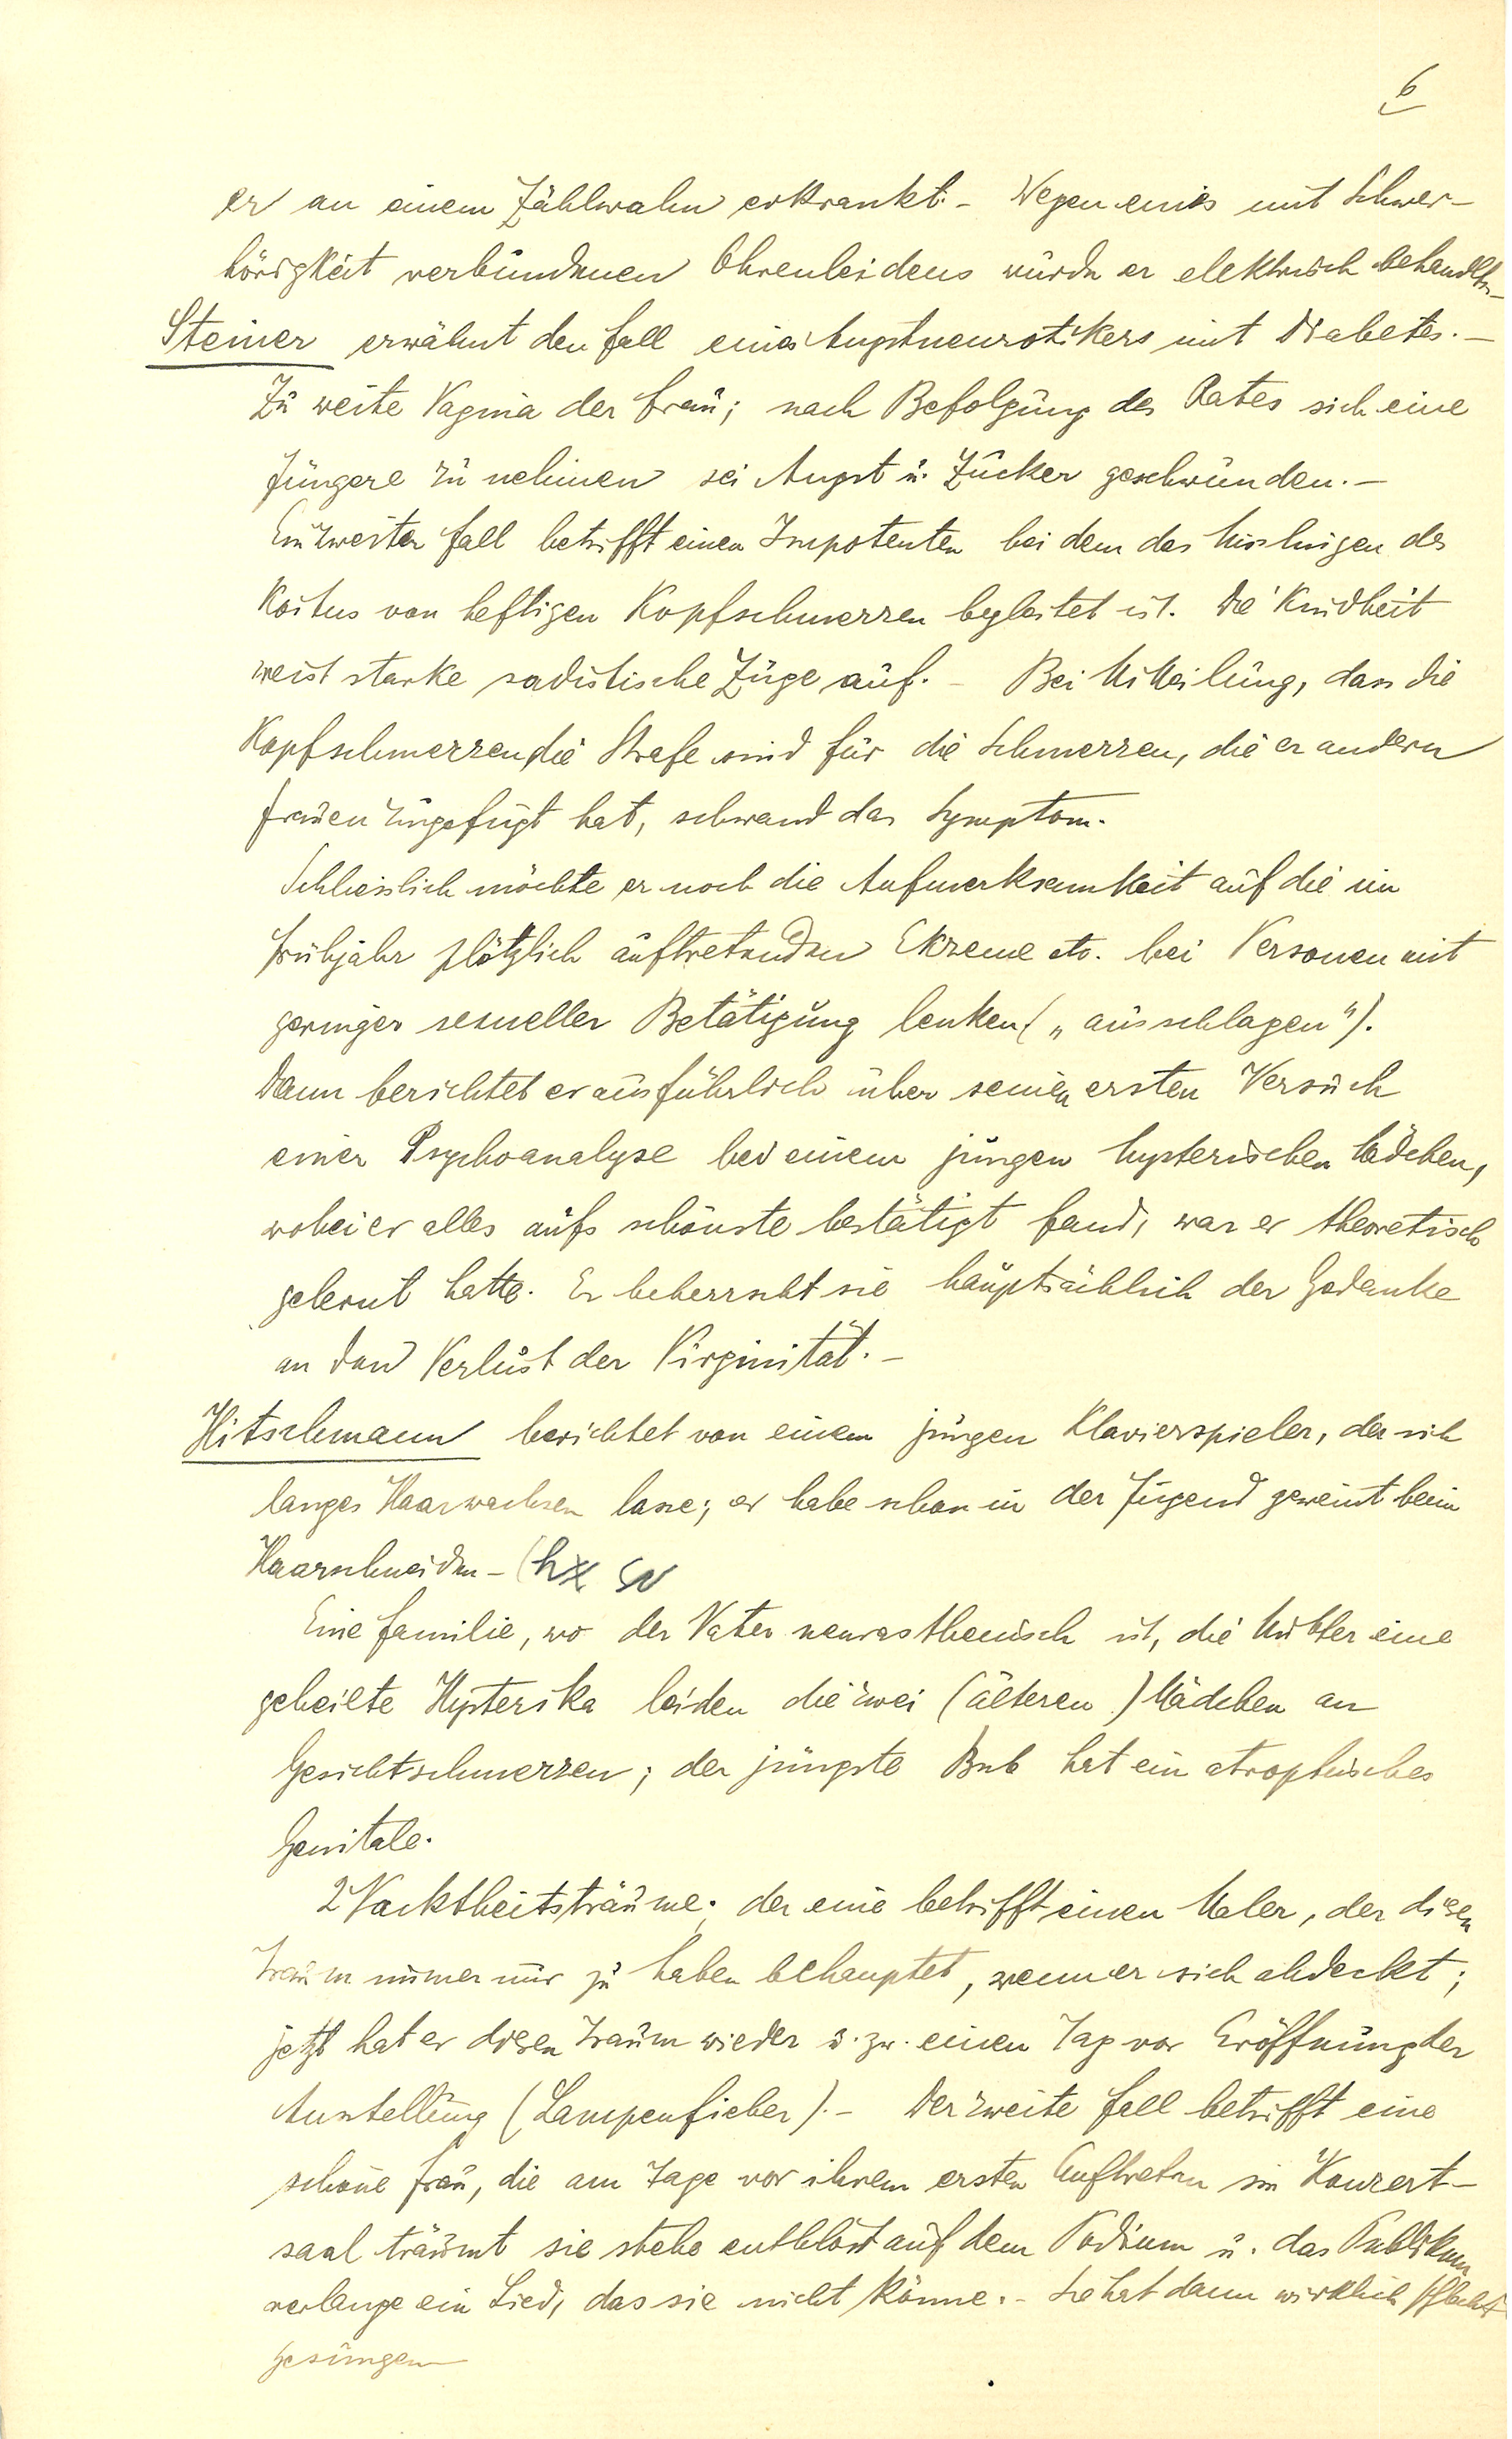 6
er an einem Zählwahn erkrankt. – Wegen eines mit Schwer-
hörigkeit verbundenen Ohrenleidens wurde er elektrisch behandelt. –
Steiner erwähnt den Fall eines Angstneurotikers mit Diabetes. –
Zu weite Vagina der Frau; nach Befolgung des Rates sich eine
Jüngere zu nehmen sei Angst u. Zucker geschwunden. –
Ein zweiter Fall betrifft einen Impotenten bei dem das Misslingen des
Koitus von heftigen Kopfschmerzen begleitet ist. Die Kindheit
weist starke sadistische Züge auf. – Bei Mitteilung, dass die
Kopfschmerzen die Strafe sind für die Schmerzen, die er andern
Frauen zugefügt hat, schwand das Symptom.
Schliesslich möchte er noch die Aufmerksamkeit auf die im
Frühjahr plötzlich auftretenden Ekzeme etc. bei Personen mit
geringer sexueller Betätigung lenken („ausschlagen").
Dann berichtet er ausführlich über seinen ersten Versuch
einer Psychoanalyse bei einem jungen hysterischen Mädchen,
wobei er alles aufs schönste bestätigt fand, was er theoretisch
gelernt hatte. Es beherrscht sie hauptsächlich der Gedanke
an den Verlust der Virginität. –
Hitschmann berichtet von einem jungen Klavierspieler, der sich
langes Haar wachsen lasse; er habe schon in der Jugend geweint beim
Haarschneiden –
Eine Familie, wo der Vater neurasthenisch ist, die Mutter eine
geheilte Hysterika leiden die zwei (älteren) Mädchen an
Gesichtschmerzen; der jüngste Bub hat ein atrophisches
Genitale.
2 Nacktheitsträume. der eine betrifft einen Maler, der diesen
Traum immer nur zu haben behauptet, wenn er sich abdeckt;
jetzt hat er diesen Traum wieder u. zw. einen Tag vor Eröffnung der
Austellung (Lampenfieber). – Der zweite Fall betrifft eine
schöne Frau, die am Tage vor ihrem ersten Auftreten im Konzert-
saal träumt sie stehe entblösst auf dem Podium u. das Publikum
verlange ein Lied, das sie nicht könne. – Sie hat dann wirklich schlecht
gesungen